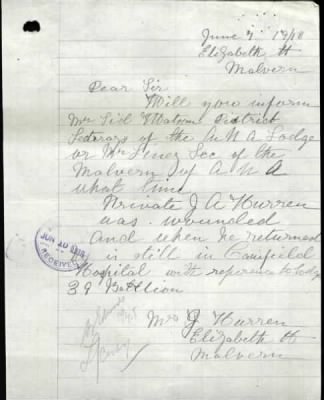 June 7. 1918
Elizabeth St
Malvern
Dear Sir
Will you inform
Mr Sid Watson District
Secterary of the A N A Lodge
or Mr Sec of the
Malvern of A N A
what time
Private J A Hurren
was wounded
And when he returned
is still in Caulfield
Hospital with reference to Lodge
39 Battlion
Mrs J Hurren
Elizabeth St
Malvern
JUN 10 1918
RECEIVED